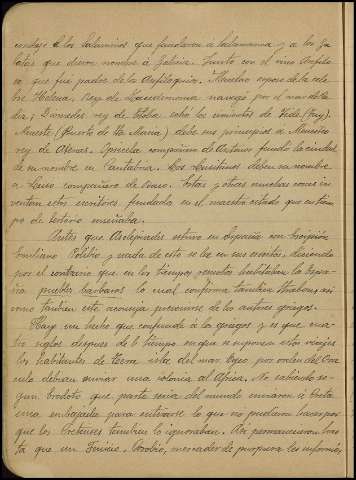 condujo á los Salaminos que fundaron á Salamanca y á los Ga-
latas que dieron nombre á Galicia. Junto con el vino Anfilo-
co que fué padre de los Anfiloquios. Menelao esposo de la céle-
bre Helena, Rey de Lacedemonia navegó por el mar de Ca-
diz; Diomedes rey de Etolia pobló los contornos de Tide (Tuy).
Menesteo (Puerto de Sta Maria) debe sus principios á Menesteo
rey de Atenas. Opsicela compañero de Antenor fundó la ciudad
de su nombre en Cantabria. Los Lusitanos deben su nombre
a Luso compañero de Baco. Estas y otras muchas cosas in-
ventan estos escritores fundados en el maestro citado que en tiem-
po de Sertorio enseñaba.
Antes que Asclepiades estuvo en España con Escipión
Emiliano Polibio y nada de esto se lee en sus escritos, diciendo
por el contrario que en los tiempos remotos habitaban la Espa-
ña pueblos bárbaros lo cual confirma tambien Strabon, asi
como tambien este aconseja precaverse de los autores griegos.
Hay un hecho que confunde á los griegos y es que cua-
tro siglos despues del tiempo en que se suponen estos viajes
los habitantes de Tera isla del mar Egeo por orden del Ora-
culo debian enviar una colonia al Africa. No sabiendo se-
gun Erodoto que parte seria del mundo enviaron á Creta
una embajada para enterarse lo que no pudieron hacer por
que los Cretenses tambien lo ignoraban. Asi permanecieron has-
ta que un Fenicio. Corobio, mercader de purpura les informó